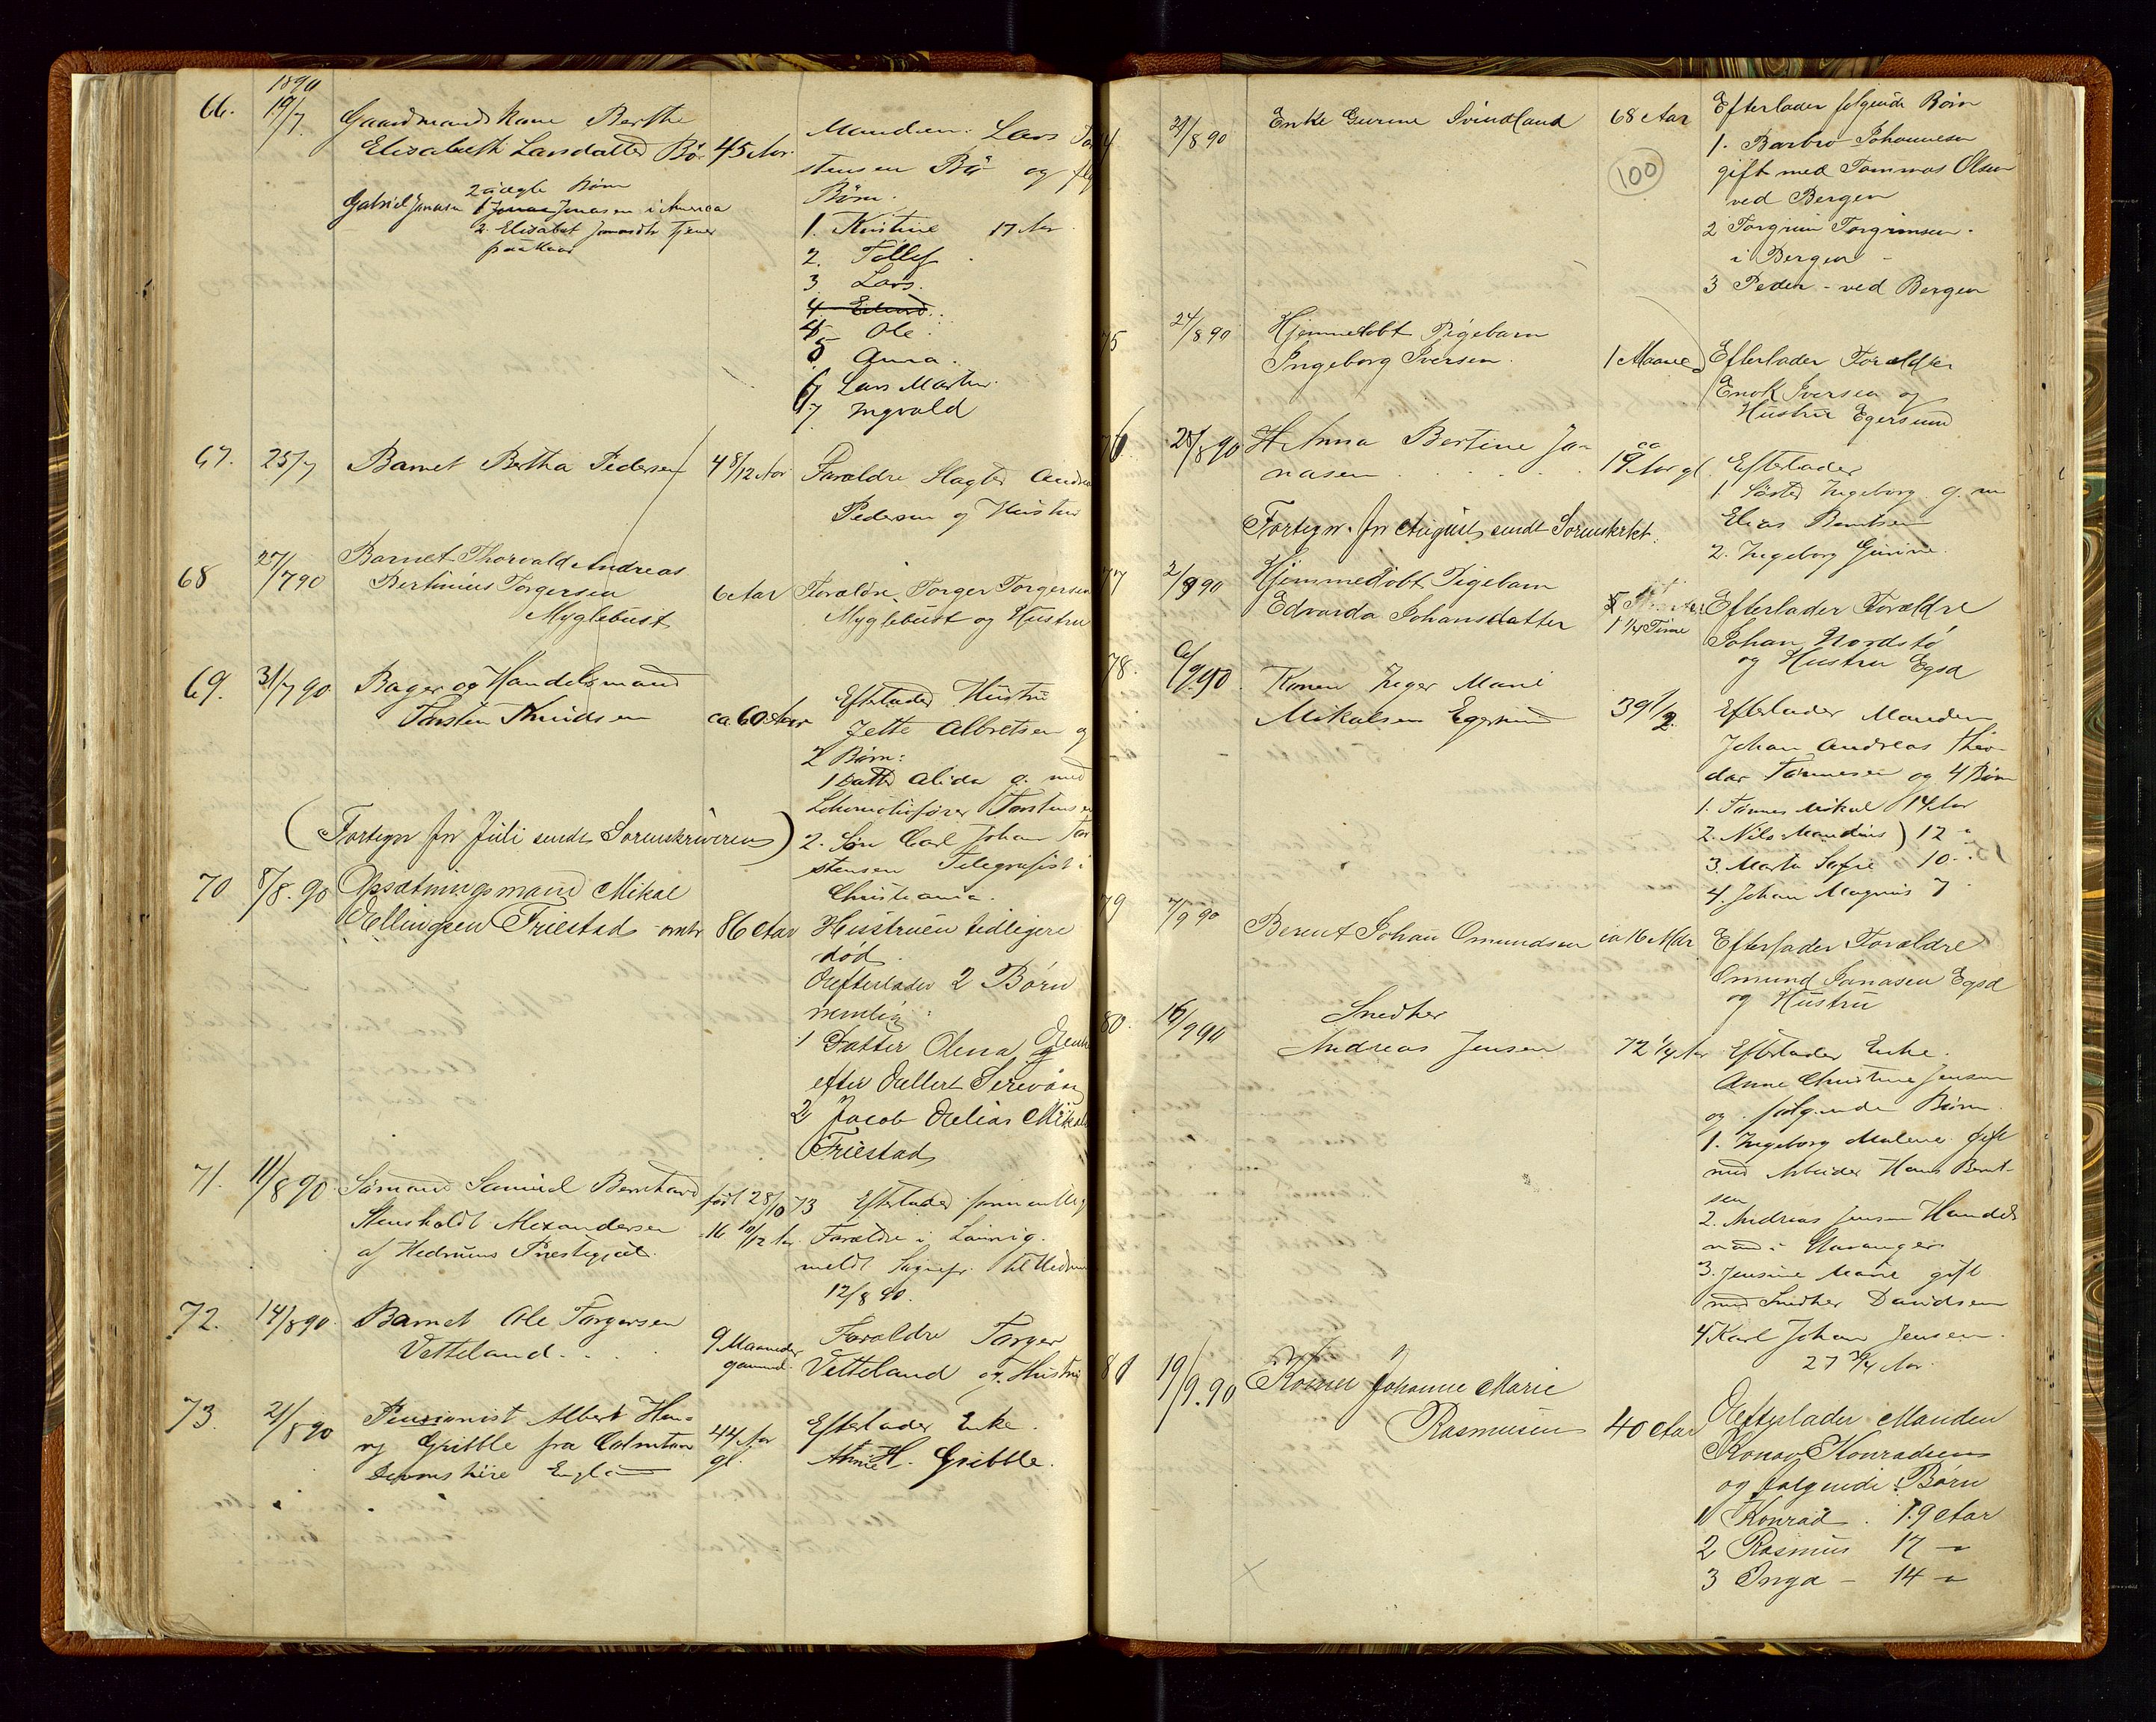 1890
66. 19/7. Gaardmandskone Berthe
Elisabeth Larsdatter Bø 45 Aar.
Manden: Lars
stensen Bø og
Børn.
2 Børn
Gabriel Jonasen 1 Jonasen i America
2. Elisabet tjener
1. Kristine 17 Aar
2. Tollef
3 Lars.
4 Edvard
4 Ole
5 Anna.
6 Lars Martin.
7 Ingvald
67. 25/7 Barnet Bertha Pedersen 4 8/12 Aar
Forældre Slagter
Pedersen og Hustru
68 27/7 90 Barnet Thorvald Andreas
Bertinius Torgersen
Myglebust 6 Aar
Forældre Torger Torgersen
Myglebust og Hustru
69. 31/7 90. Bager og Handelsmand
Torsten Knudsen ca 60 Aar
Efterlader Hustru
Jette Albretsen og
2 Børn:
1 Datter Alida g. med
Lokomotivfører Torstensen
2. Søn Carl Johan Tor
stensen Telegrafist i
Christiania.
(Fortegn for Juli sendt Sorenskriveren)
70 8/8. 90 Opsætningsmand Mikal
Ellingsen Friestad omtr 86 Aar
Hustruen tidligere
død.
Efterlader 2 Børn
nemlig:
1 Datter Olena Enke
efter Ellert
2 Jacob Elias
Friestad
71. 11/8 90. Sømand Samuel Bernhard
Stensholdt Alexandersen
af Hedrums Præstegjæld.
født 28/10 73
16 10/12 Aar.
Efterlader
Forældre i
meldt til
12/8 90.
72. 14/8 90. Barnet Ole Torgersen
Vetteland.
9 Maaneder
gammel.
Forældre Torger
Vetteland og Hustru
73. 21/8 90 Pensionist Albert
Gribble fra
Devonshire England
44 Aar
gl.
Efterlader Enke.
Annie H. Gribble.
74 21/8 90 Enke Gurine Svindland 68 Aar
(100)
Efterlader følgende Børn
1. Barbro Johannesen
gift med Tommas Olsen
ved Bergen
2 Torgrim Torgrimsen.
i Bergen
3 Peder - ved Bergen
75 24/8 90 Hjemmedøbt Pigebarn
Ingeborg Iversen. 1 Maaned
Efterlader Forældre
Enok Iversen og
Hustru Egersund
76 25/8 90 Anna Bertine Jo-
nasen
ca
19 Aar gl.
Efterlader
1. Søster Ingeborg g. m
Elias Berntsen
2. Ingeborg Gurine.
Fortegn. for August sendt Sorenskrkt.
77 2/9 90 Hjemmedøbt Pigebarn
Edvarda Johansdatter
1 1/4 Time
Efterlader Forældre
Johan Nordstø
og Hustru Egsd
78. 6/9 90. Konen Inger Marie
Mikalsen Egersund 39 1/2.
Efterlader Manden
Johan Andreas Theo
dor Tønnesen og 4 Børn
1. Tønnes Mikal 14 Aar
2. Nils Maudius 12 "
3. Marta Sofie 10 "
4. Johan Magnus 7
79 7/9 90 Berent Johan Omundsen ca 16 Mdr
Efterlader Forældre
Omund Jonasen Egsd
og Hustru
80. 16/9 90 Snedker
Andreas Jensen 72 1/4 Aar
Efterlader Enke.
Anne Christine Jensen
og følgende Børn.
1. Ingeborg Malene gift
med Arbeider Hans Bernt-
sen
2. Andreas Jensen Handels
mand i Stavanger
3. Jensine Marie gift
med Snedker Davidsen
4 Karl Johan Jensen.
27 3/4 Aar.
81 19/9. 90 Konen Johanne Marie
Rasmussen 40 Aar
Efterlader Manden
Konrad Konradsen
og følgende Børn
1 Konrad. 19 Aar
2 Rasmus 17 "
3 Inga - 14 "